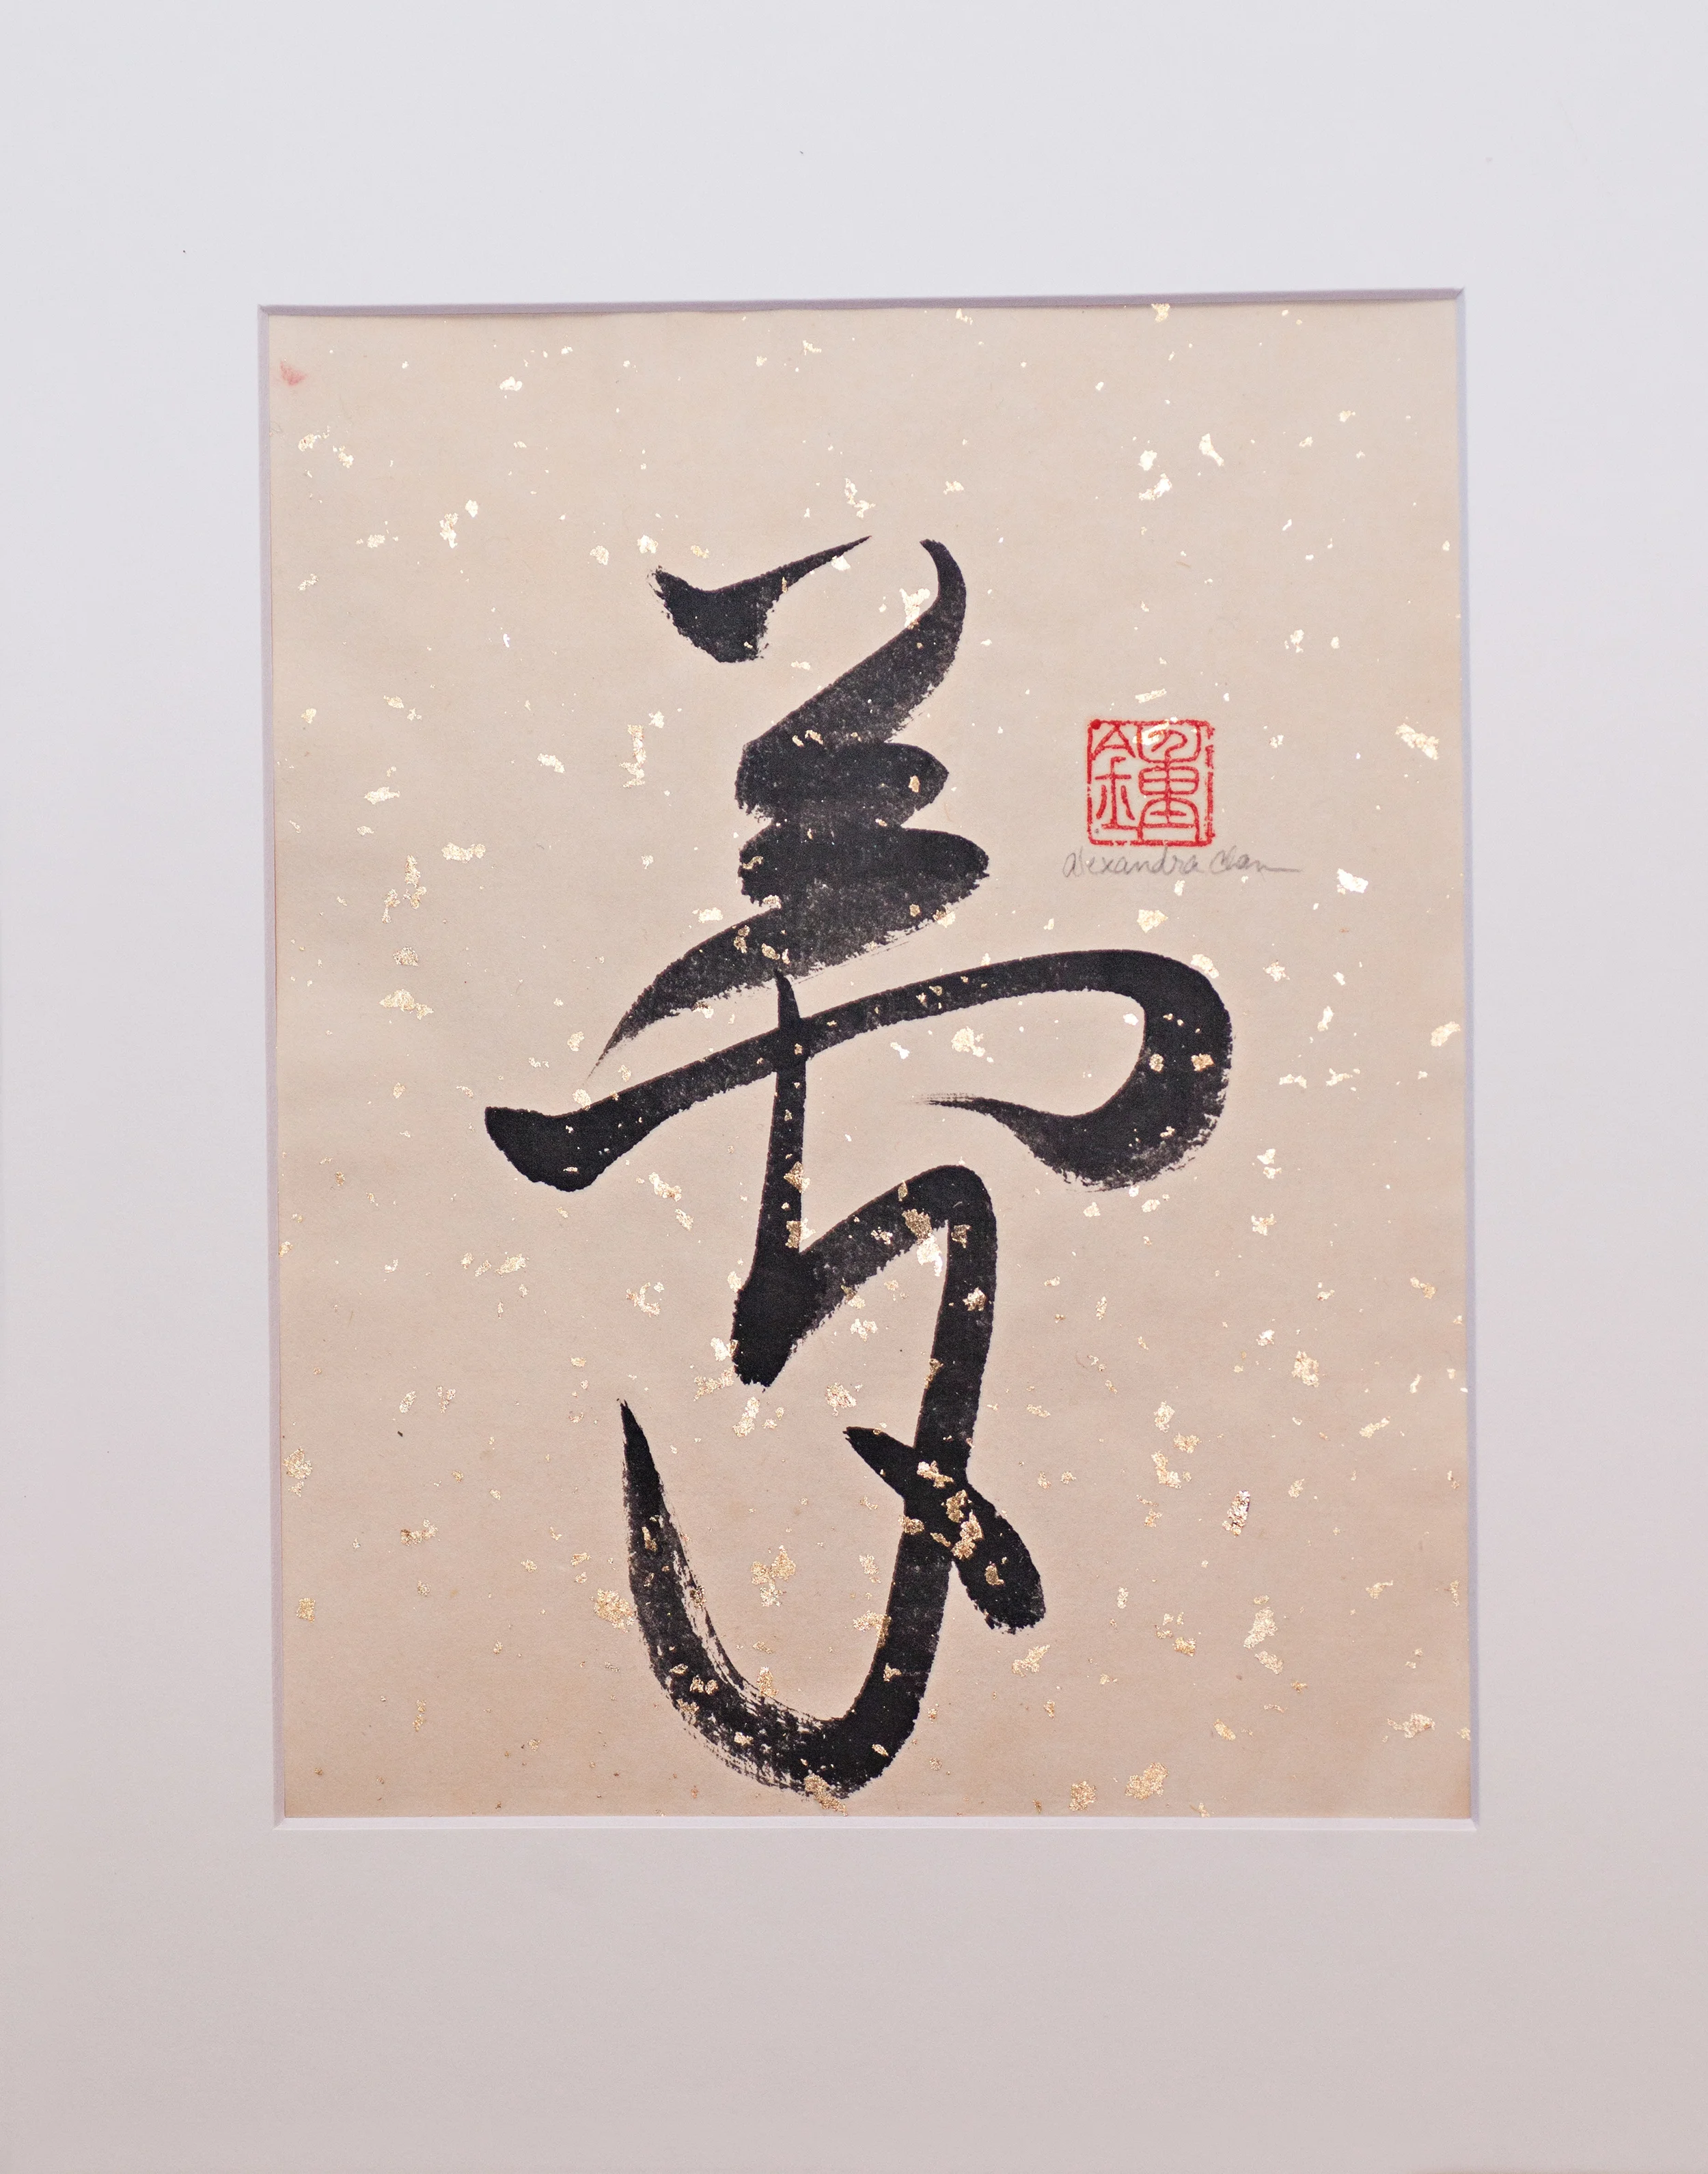 夢
鍾
Alexandra Chan